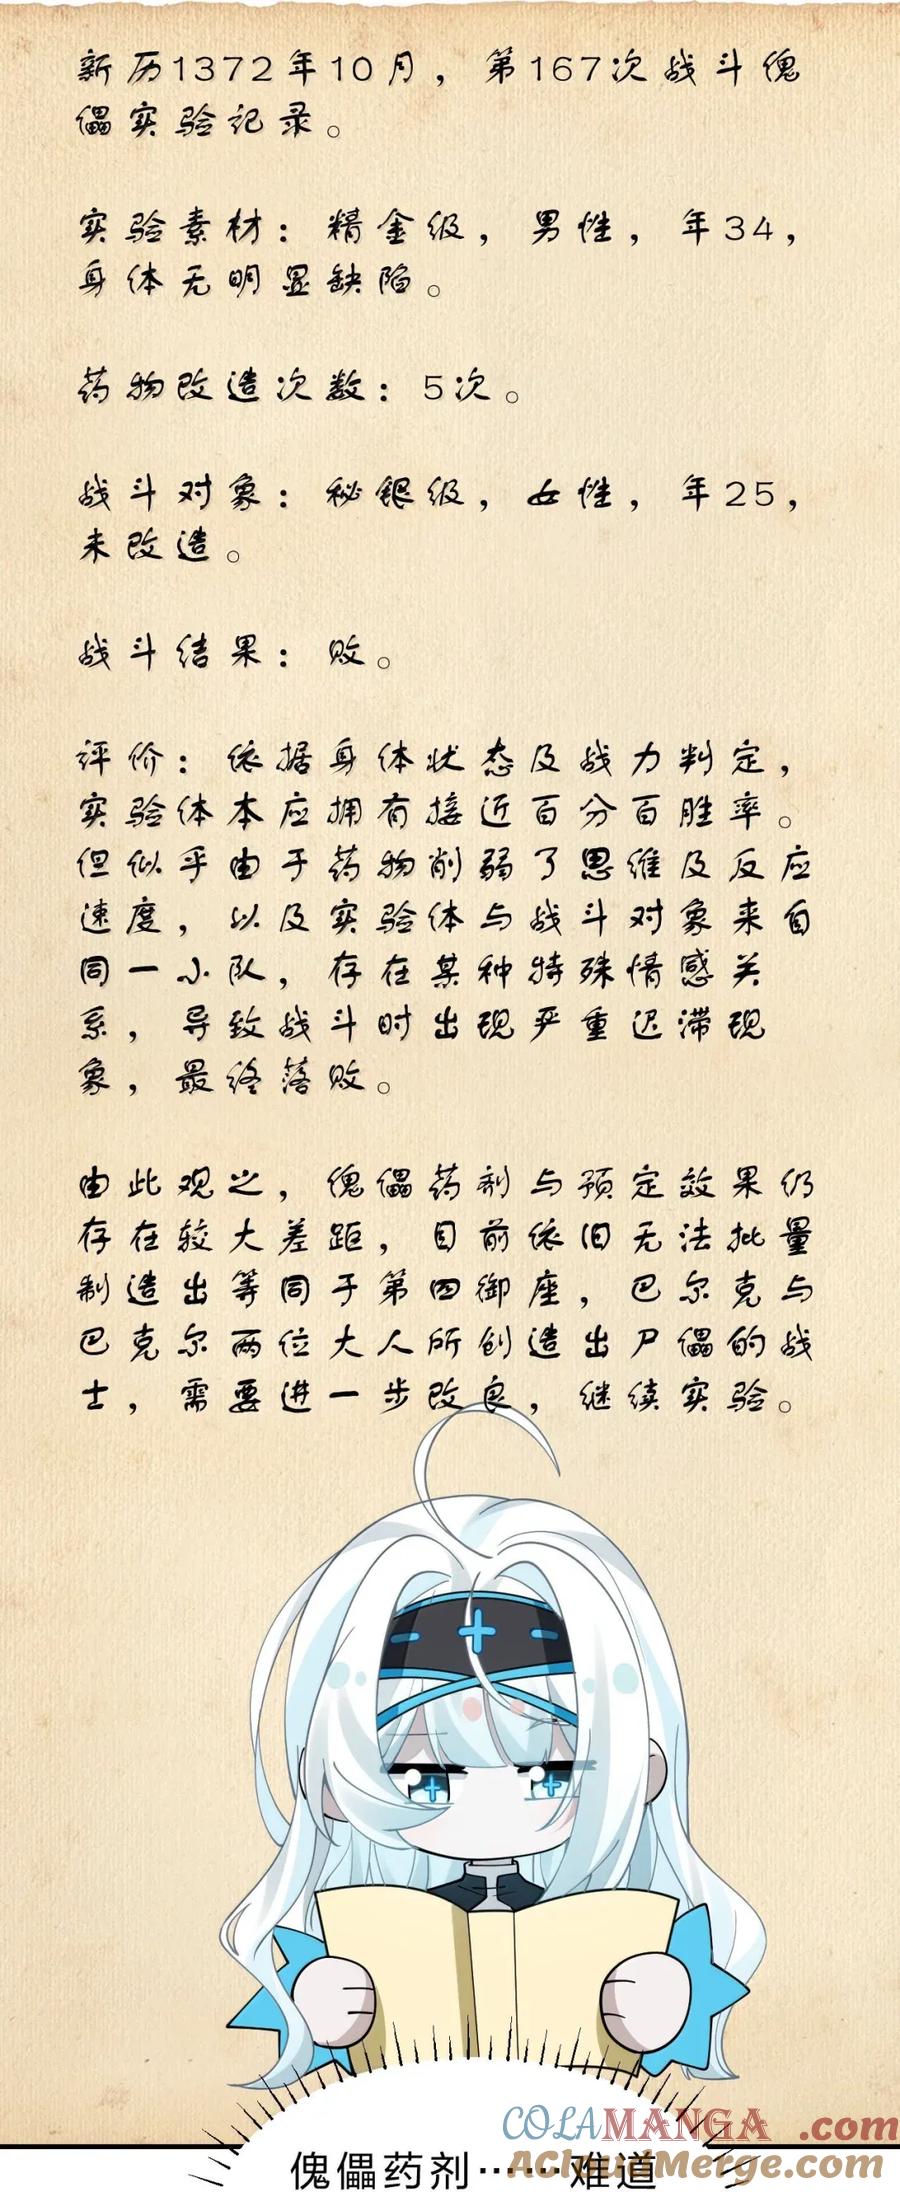 新历1372年10月，第167次战斗傀
儡实验记录。
实验素材：精金级，男性，年34，
身体无明显缺陷。
药物改造次数：5次。
战斗对象：秘银级，女性，年25，
未改造。
战斗结果：败。
评价：依据身体状态及战力判定，
实验体本应拥有接近百分百胜率。
但似乎由于药物削弱了思维及反应
速度，以及实验体与战斗对象来自
同一小队，存在某种特殊情感关
系，导致战斗时出现严重迟滞现
象，最终落败。
由此观之，傀儡药剂与预定效果仍
存在较大差距，目前依旧无法批量
制造出等同于第四御座，巴尔克与
巴克尔两位大人所创造出尸傀的战
士，需要进一步改良，继续实验。
COLAMANGA.com
傀儡药剂……难道
AcloudMerge.com